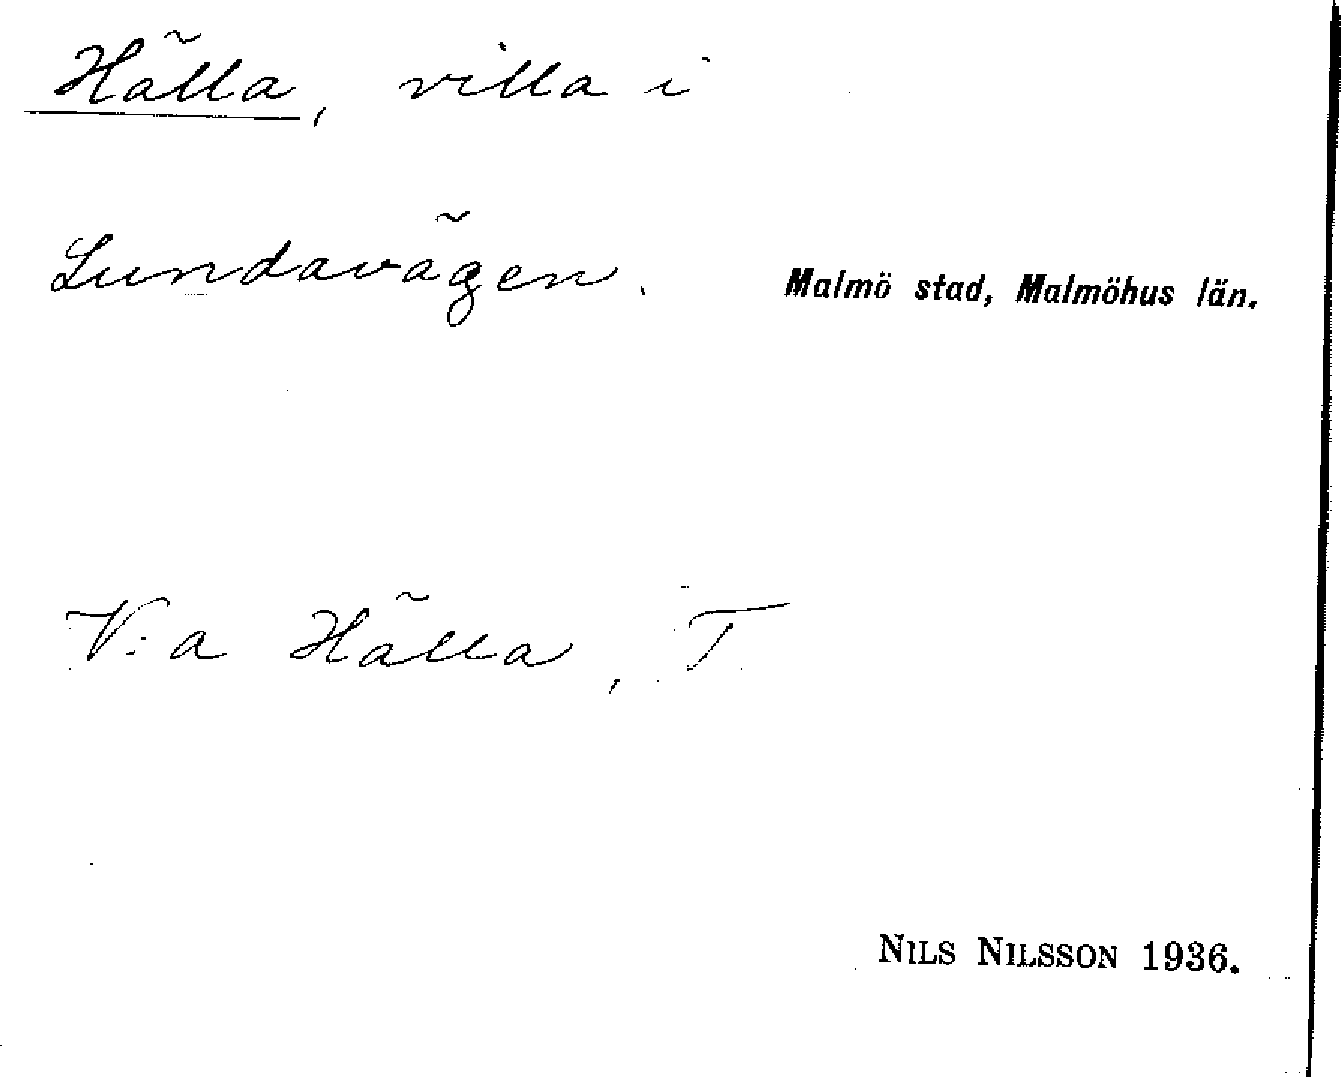 Hälla, villa i
Lundavägen. Malmö stad, Malmöhus län.
V:a Hälla, T
NILS NILSSON 1936.